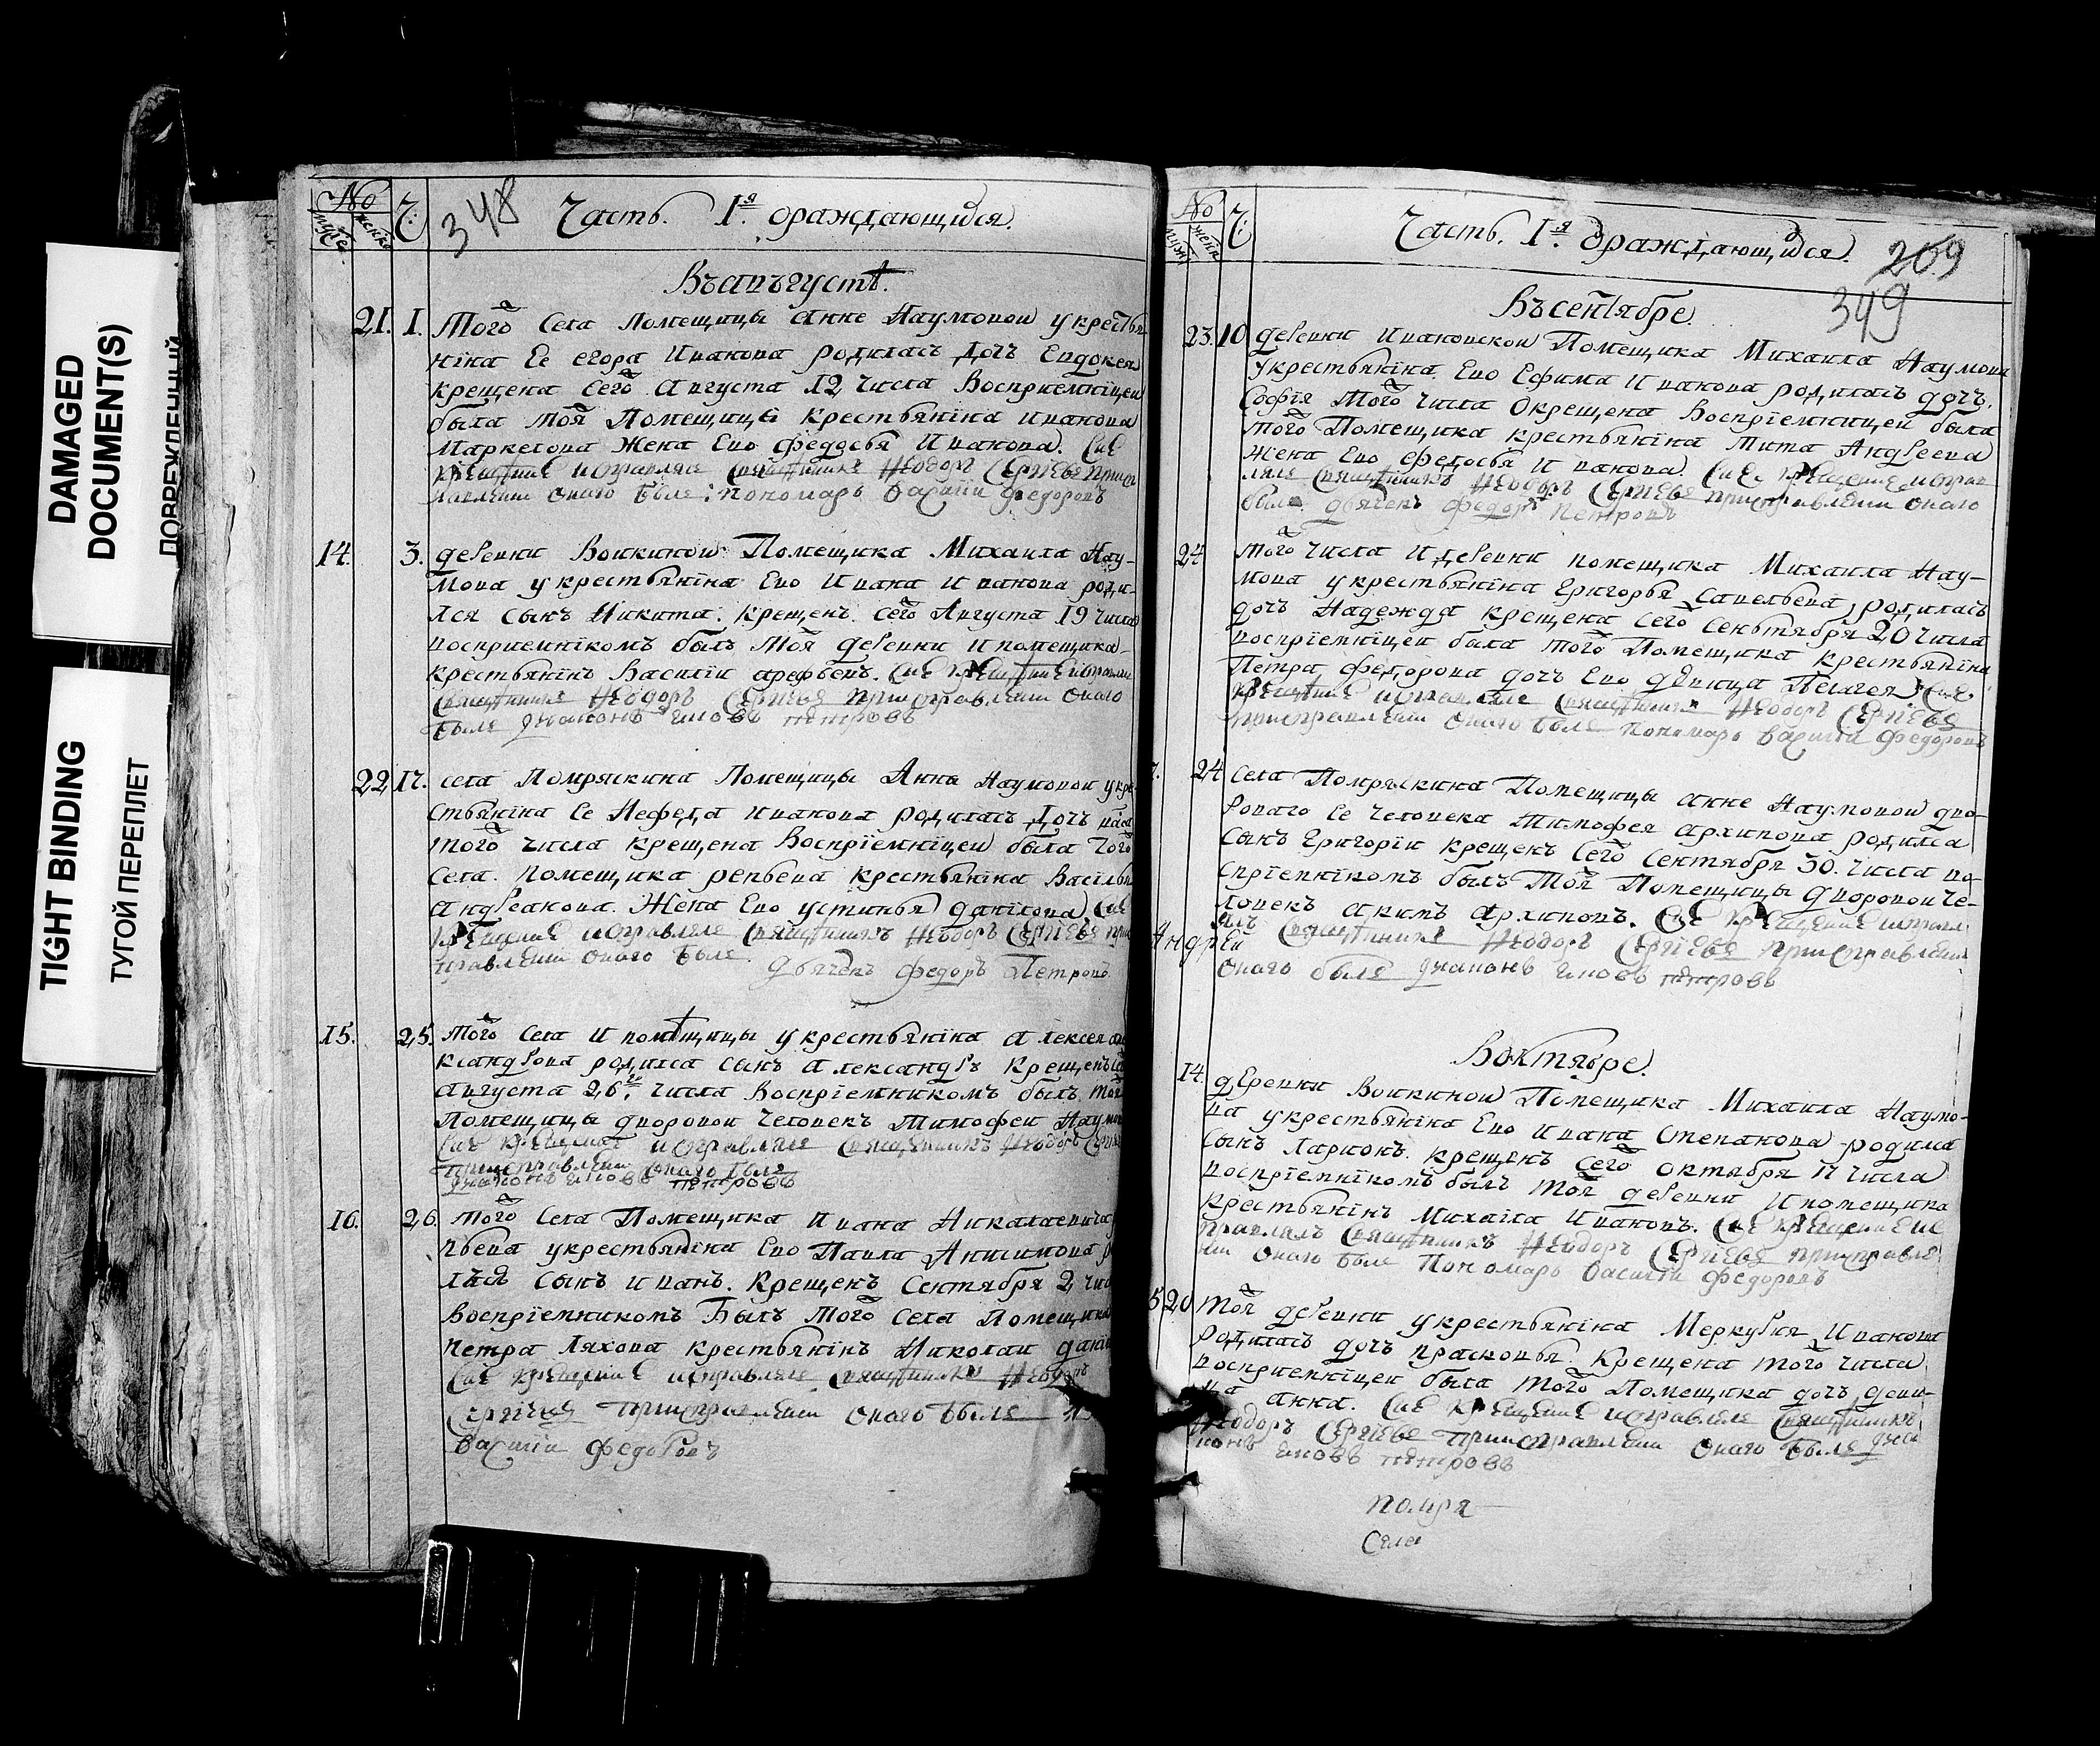 DAMAGED
DOCUMENT(S)
TIGHT BINDING
ТУГОЙ ПЕРЕПЛЕТ
№
Ч:
348
Часть. I.я ораждающихся.
Въавъгустѣ.
21. 1. Того Села Помещицы Анне Наумовой укрестья
ніна Ее егора Иванова родилась дочь Евдокея
крещена Сего Августа 12 числа Восприемніцей
была тоя Помещицы крестьяніна иванова
Маркелова Жена Ево федосья Иванова. Сие
крещение исправлял Священникъ Феодоръ Сергеев
онаго был: пономарь василий федоровъ
14. 3. деревни Воикиной Помещика Михаила Нау-
мова укрестьяніна Ево Ивана Иванова роди-
лся сынъ Никита. крещенъ Сего Августа 19 числа
восприемнікомъ былъ тоя деревни ипомещика
крестьянінъ Василий
Священник Феодоръ Сергеев приисправлении онаго
был петровъ
22 17. села Помряскина Помещицы Анны Наумовой укре
стьяніна Ее Нефеда Иванова родилась дочь
того числа крещена Воспріемніцей была того
Села. Помещика репьева крестьяніна Василья
Жена Ево устинья данілова Сие
крещение исправлял Священникъ Феодоръ Сергеев
онаго был. дьячекъ федоръ Петровъ
15. 25. Того Села Ипомѣщицы укрестьяніна Алексея
ксандрова родился сынъ Александръ крещенъ
Августа 26го числа Воспріемникомъ былъ тоя
Помещицы дворовой человекъ Тимофей Наумо
Сие крещение исправлял Священникъ Феодоръ
приисправлении онаго был
петровъ
16. 26. Того Села Помещика Ивана Никалаевича
пьева укрестьяніна Ево Павла Анисимова
лъся сынъ иванъ. Крещенъ Сентября 2 чис
Воспріемникомъ Былъ того Села Помещика
петра Ляхова крестьянінъ Николай дані
Сие крещение исправлял Священникъ Феодоръ
Сергеев приисправлении онаго был
василий федоровъ
№
Ч:
Часть. I.я ораждающихся.
209
349
Въсентябре.
23. 10 деревни Ивановской Помещика Михаила Наумова
укрестьяніна. Ево Ефима Иванова родилась дочь.
Софія Того числа Окрещена Воспріемницей была
того Помещика крестьяніна Тита Андреева
жена Ево федосья Иванова. Сие крещение исправ
лял Священникъ Феодоръ Сергеев приисправлении онаго
был дьячекъ федоръ Петровъ
24 того числа Идеревни помещика Михаила Нау-
мова укрестьяніна Григорья Савельева родилась
дочь Надежда крещена Сего Сентября 20 числа
воспріемніцей была того Помещика крестьяніна
Петра федорова дочь Ево девица Пелагея Сие
крещение исправлял Священникъ Феодоръ Сергеев
приисправлении онаго был пономарь василий федоровъ
24 Села Помряскина Помещицы Анне Наумовой дво-
роваго Ее человека Тимофея Архипова родился
сынъ Григорій крещенъ Сего Сентября 30. числа во-
спріемнікомъ былъ тоя Помещицы дворовой че-
ловекъ Акимъ Архиповъ. Сие крещение исправ
Андрей
лял Священникъ Феодоръ Сергеев приисправлении
онаго был петровъ
Воктябре.
14. деревни Воикиной Помещика Михаила Наумо-
ва укрестьяніна Ево Ивана Степанова родился
сынъ Ларионъ. крещенъ Сего Октября 17 числа
воспріемнікомъ былъ тоя деревни Ипомещика
крестьянінъ Михайла Ивановъ. Сие крещение ис
правлялъ Священникъ Феодоръ Сергеев приисправле
нии онаго был Пономарь василий федоровъ
5 20 тоя деревни укрестьяніна Меркурия Иванова
родилась дочь прасковья. Крещена того числа
воспріемніцей была того Помещика дочь деви-
ца анна. Сие крещение исправлял Священникъ
Феодоръ Сергеев приисправлении онаго был
петровъ
помря
Села